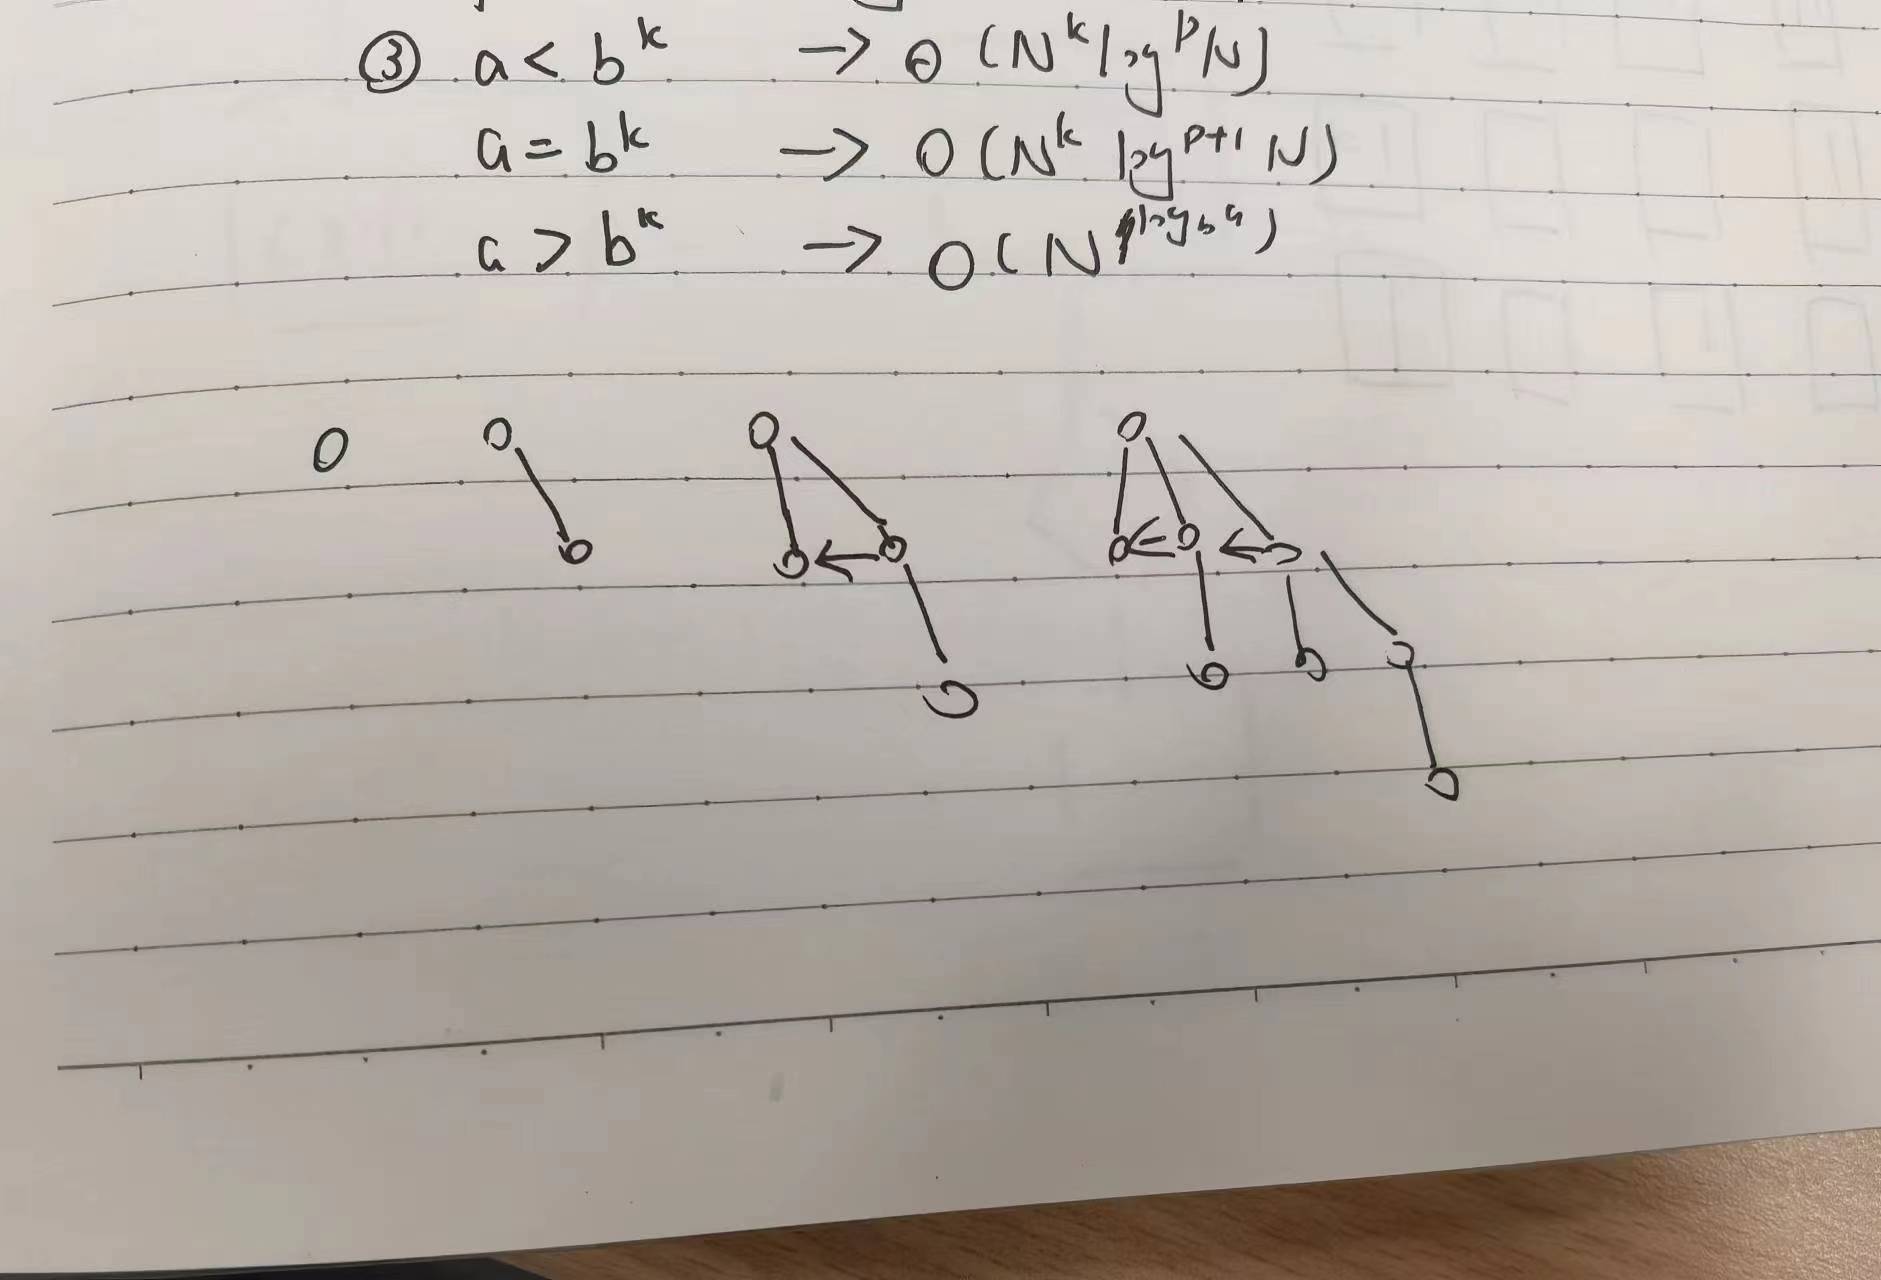 ③ a < b^k → Θ (N^k log^p N)
a = b^k → O (N^k log^{p+1} N)
a > b^k → O (N^{log_b a})